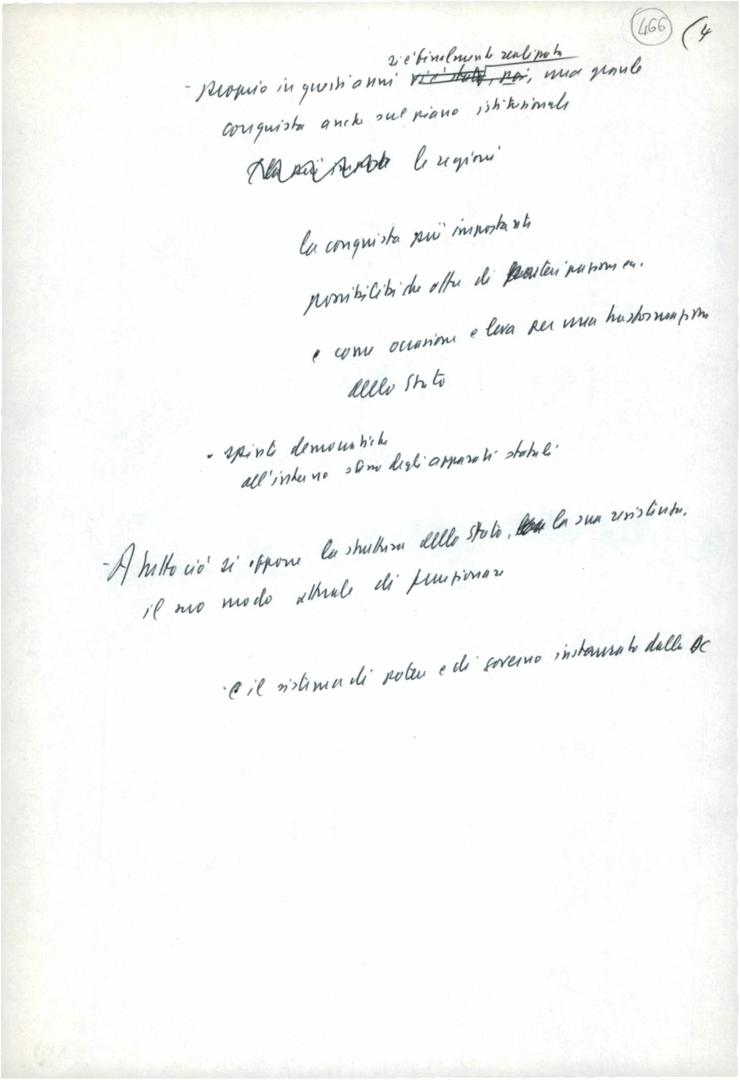 466 (4
si è finalmente realizzata
- proprio in questi anni vi è stata, poi, una grande
conquista anche sul piano istituzionale
le regioni
la conquista più importante
possibilità che offre di partecipazione
e come occasione e leva per una trasformazione
dello Stato
- spinte democratiche
all'interno stesso degli apparati statali
- A tutto ciò si oppone la struttura dello Stato, la sua resistenza,
il suo modo attuale di funzionare
- e il sistema di potere e di governo instaurato dalla DC